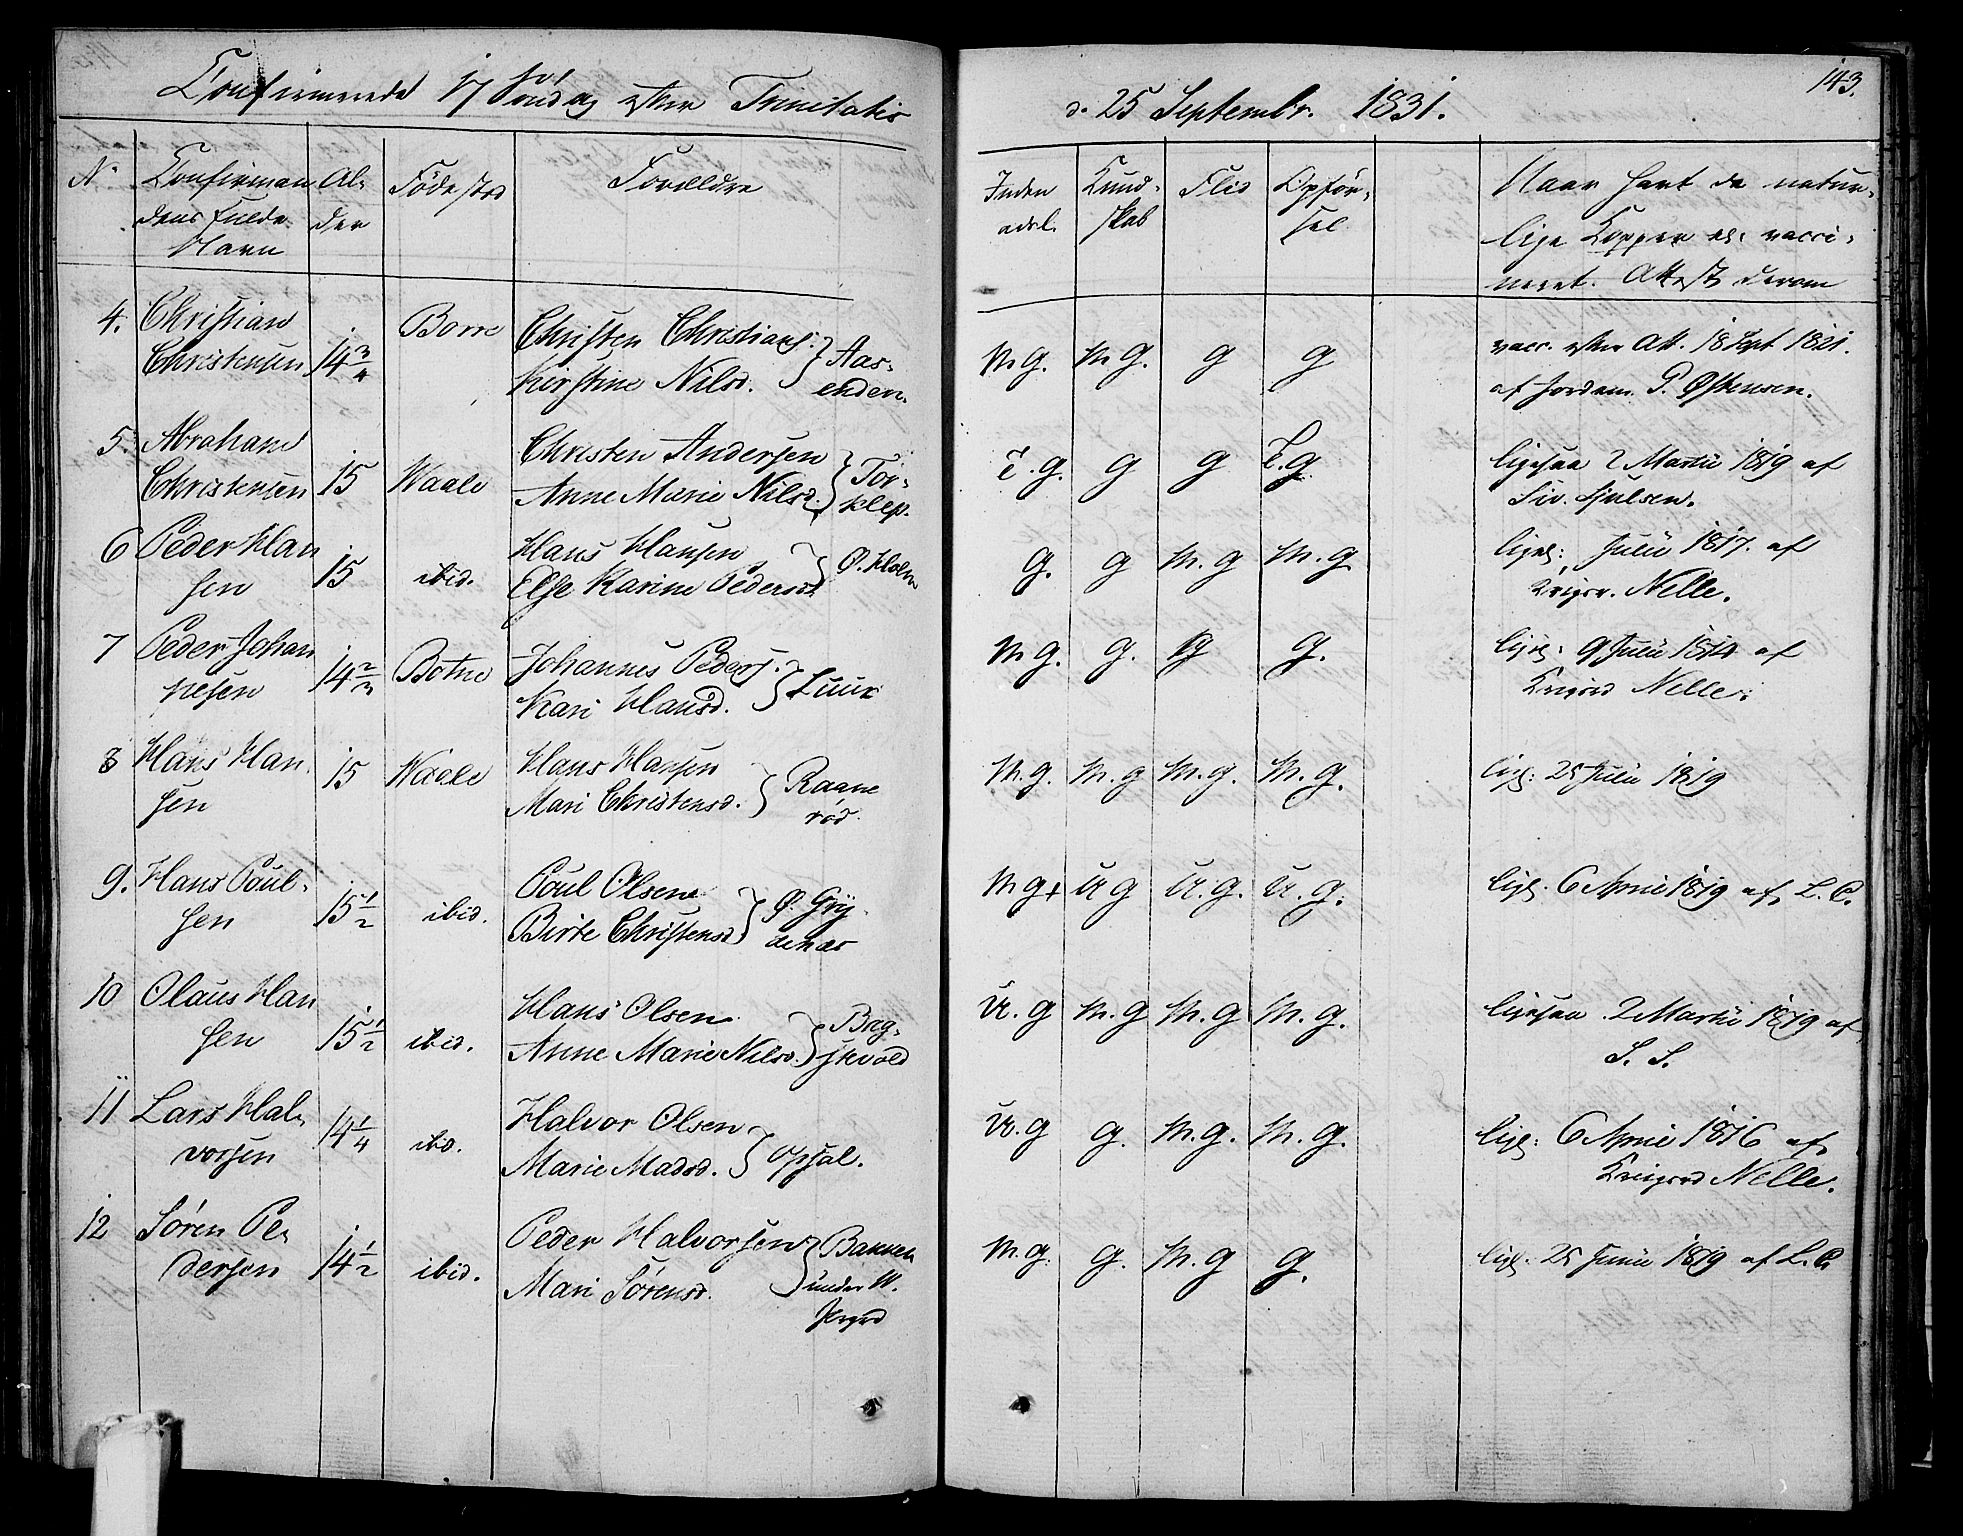 143.
Confirmerede 17 Søndag efter Trinitatis
d. 25 Septembr. 1831.
N.
Confirman
dens fulde
Navn
Al-
der
Fødested
Forældre
Inden
adl.
Kund-
skab
Flid
Opfør-
sel
Naar havt de natur-
lige Kopper el. vacci-
neret. Attest derom
4. Christian
Christensen
14 3/4
Borre
Christen Christians.
Kirstine Nilsd.
Aas-
enden.
M. G. M. G. g g
vacc. efter Att. 18 Sept 1821.
af Jordem. P. Østensen.
5. Abraham
Christensen
15
Waale
Christen Andersen
Anne Marie Nilsd.
Tor-
klep.
T. g. g g T. g
ligesaa 2 Martii 1819 af
Siv. Hjulsen.
6 Peder Han
sen
15
ibid.
Hans Hansen
Else Karine Pedersd.
Ø. Holm
g. g M. g M. g
liges: Julii 1817. af
Krigsr. Nelle.
7 Peder Johan
nesen
14 2/3
Botne
Johannes Peders.
Kari Hansd.
Luur
M g. g. g g.
liges: 9 Julii 1814 af
Krigsrd Nelle.
8 Hans Han
sen
15
Waale
Hans Hansen
Mari Christensd.
Raane
rød.
M. g. M. g M. g. M. g.
liges: 25 Julii 1819
9. Hans Poul-
sen
15 1/2
ibid.
Poul Olsen
Birte Christensd.
Ø. Gry
denes
M g+ U g U. g. U. g.
liges. 6 April 1819 af L. C.
10 Olaus Han
sen
15 1/2
ibid.
Hans Olsen
Anne Marie Nilsd.
Bag-
skvold
U. g M. g M. g M. g.
ligesaa 2 Martii 1819 af
S. S.
11 Lars Hal-
vorsen
14 1/4
ibid.
Halvor Olsen
Marie Madsd.
Opsal.
U. g g. M. g. M. g.
liges: 6 April 1816 af
Krigsrd Nelle.
12 Søren Pe-
dersen
14 1/2
ibid.
Peder Halvorsen
Mari Sørensd.
Bakken
under W.
M. g. g. M. g g.
liges. 25 Junii 1819 af L. C.